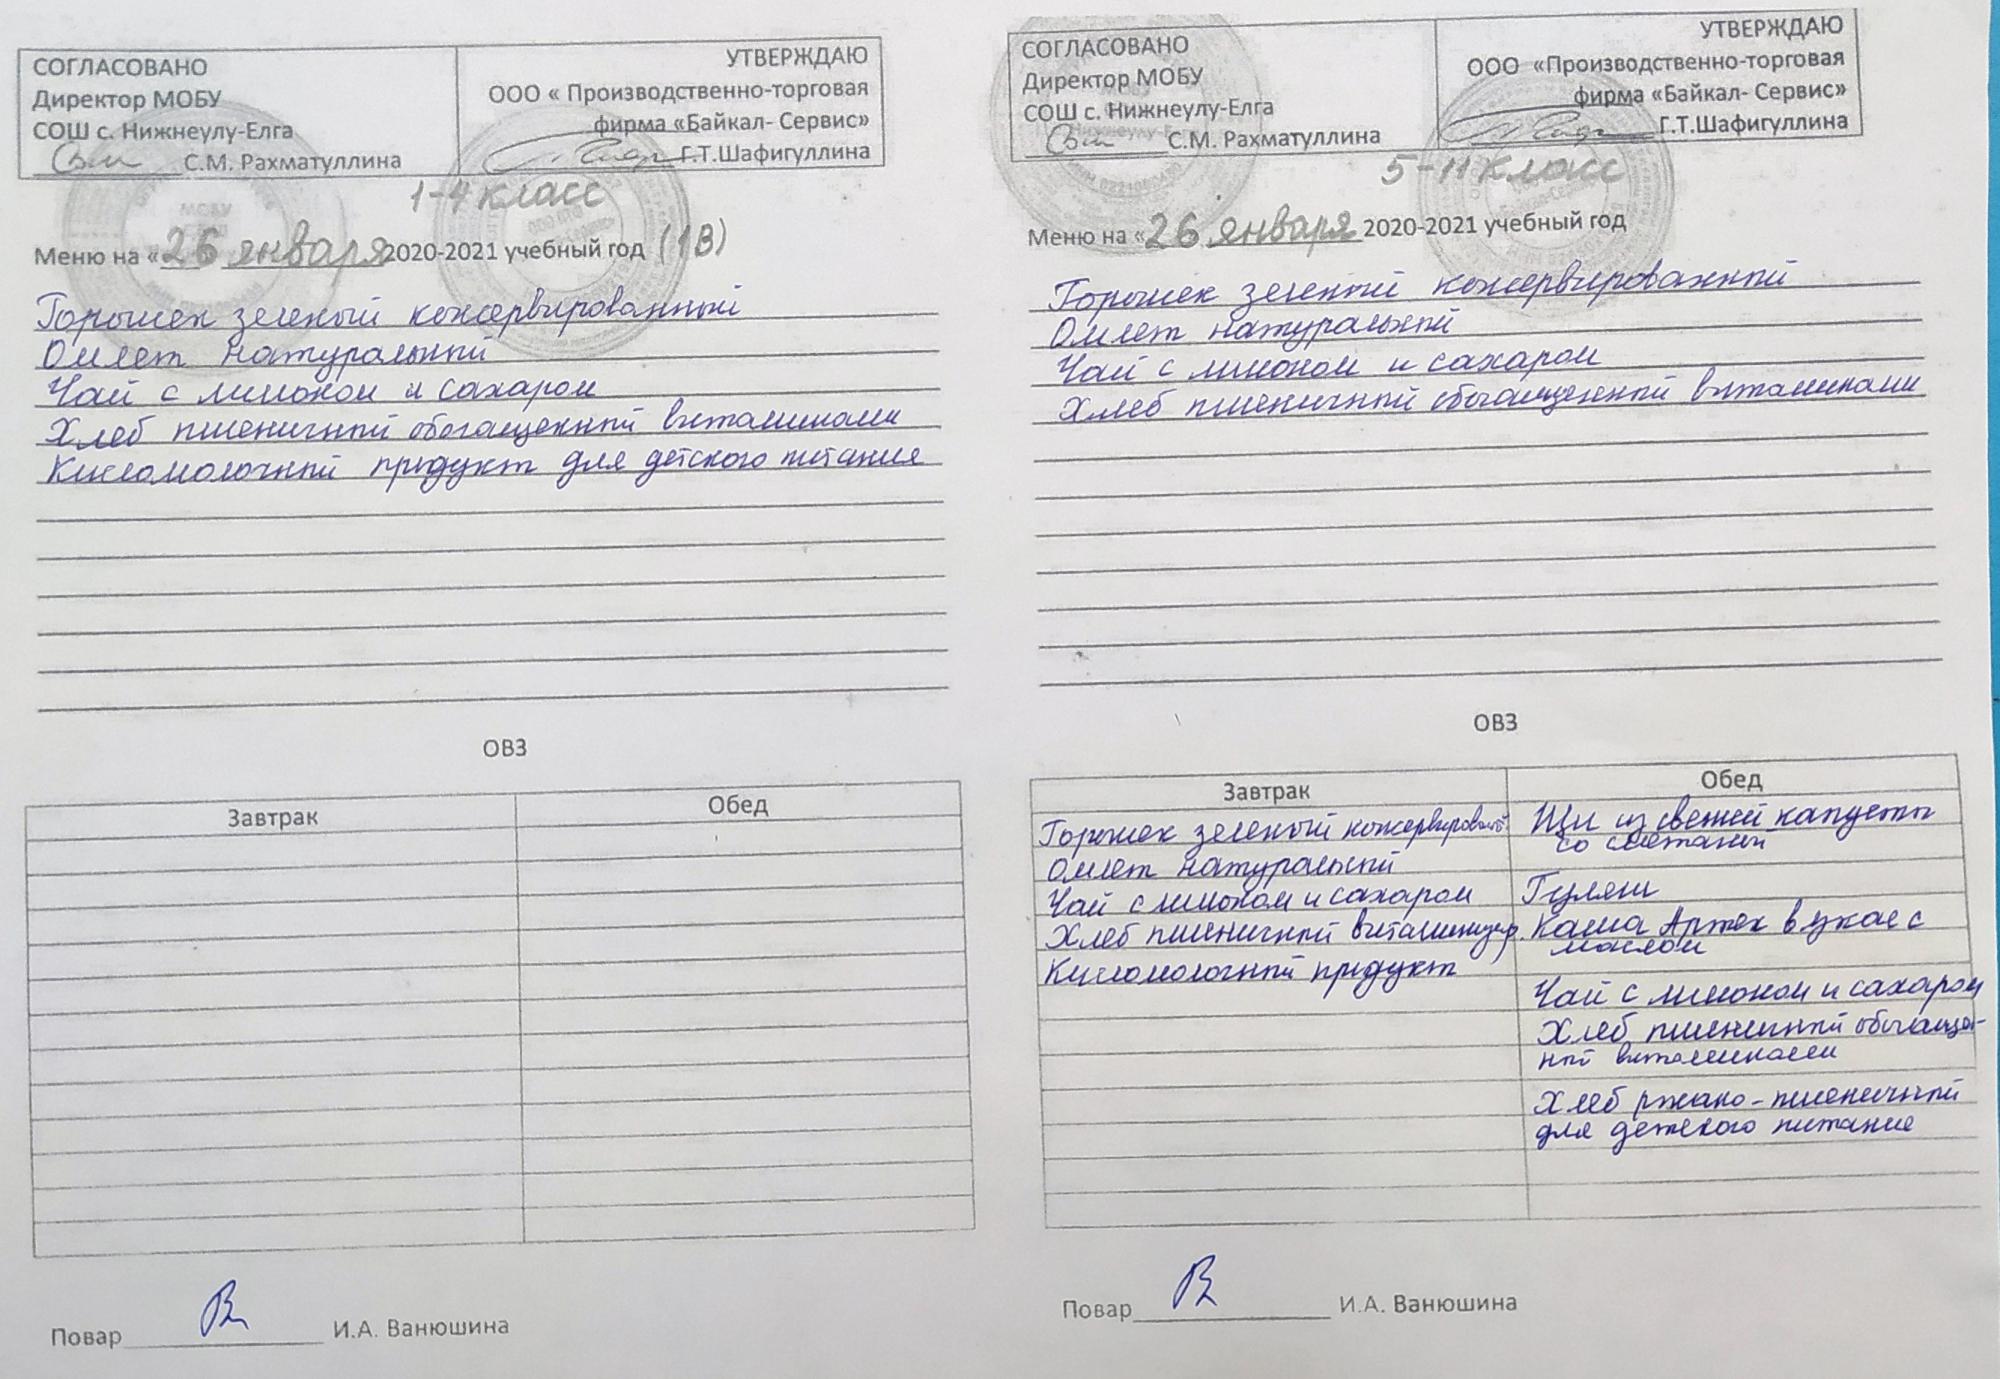 СОГЛАСОВАНО
Директор МОБУ
СОШ с. Нижнеулу-Елга
С.М. Рахматуллина
УТВЕРЖДАЮ
ООО « Производственно-торговая
фирма «Байкал- Сервис»
Г.Т.Шафигуллина
1-4 класс
Меню на «26 января 2020-2021 учебный год (1В)
Горошек зеленый консервированный
Омлет натуральный
Чай с лимоном и сахаром
Хлеб пшеничный обогащенный витаминами
Кисломолочный продукт для детского питания
ОВЗ
Завтрак
Обед
Повар И.А. Ванюшина
СОГЛАСОВАНО
Директор МОБУ
СОШ с. Нижнеулу-Елга
С.М. Рахматуллина
УТВЕРЖДАЮ
ООО «Производственно-торговая
фирма «Байкал- Сервис»
Г.Т.Шафигуллина
5-11 класс
Меню на «26 января 2020-2021 учебный год
Горошек зеленый консервированный
Омлет натуральный
Чай с лимоном и сахаром
Хлеб пшеничный обогащенный витаминами
ОВЗ
Завтрак
Горошек зеленый
Омлет натуральный
Чай с лимоном и сахаром
Хлеб пшеничный витаминизир.
Кисломолочный продукт
Обед
Щи из свежей капусты
со сметаной
Гуляш
Каша Артек вязкая с
маслом
Чай с лимоном и сахаром
Хлеб пшеничный обогаще-
ный витаминами
Хлеб ржано-пшеничный
для детского питание
Повар И.А. Ванюшина